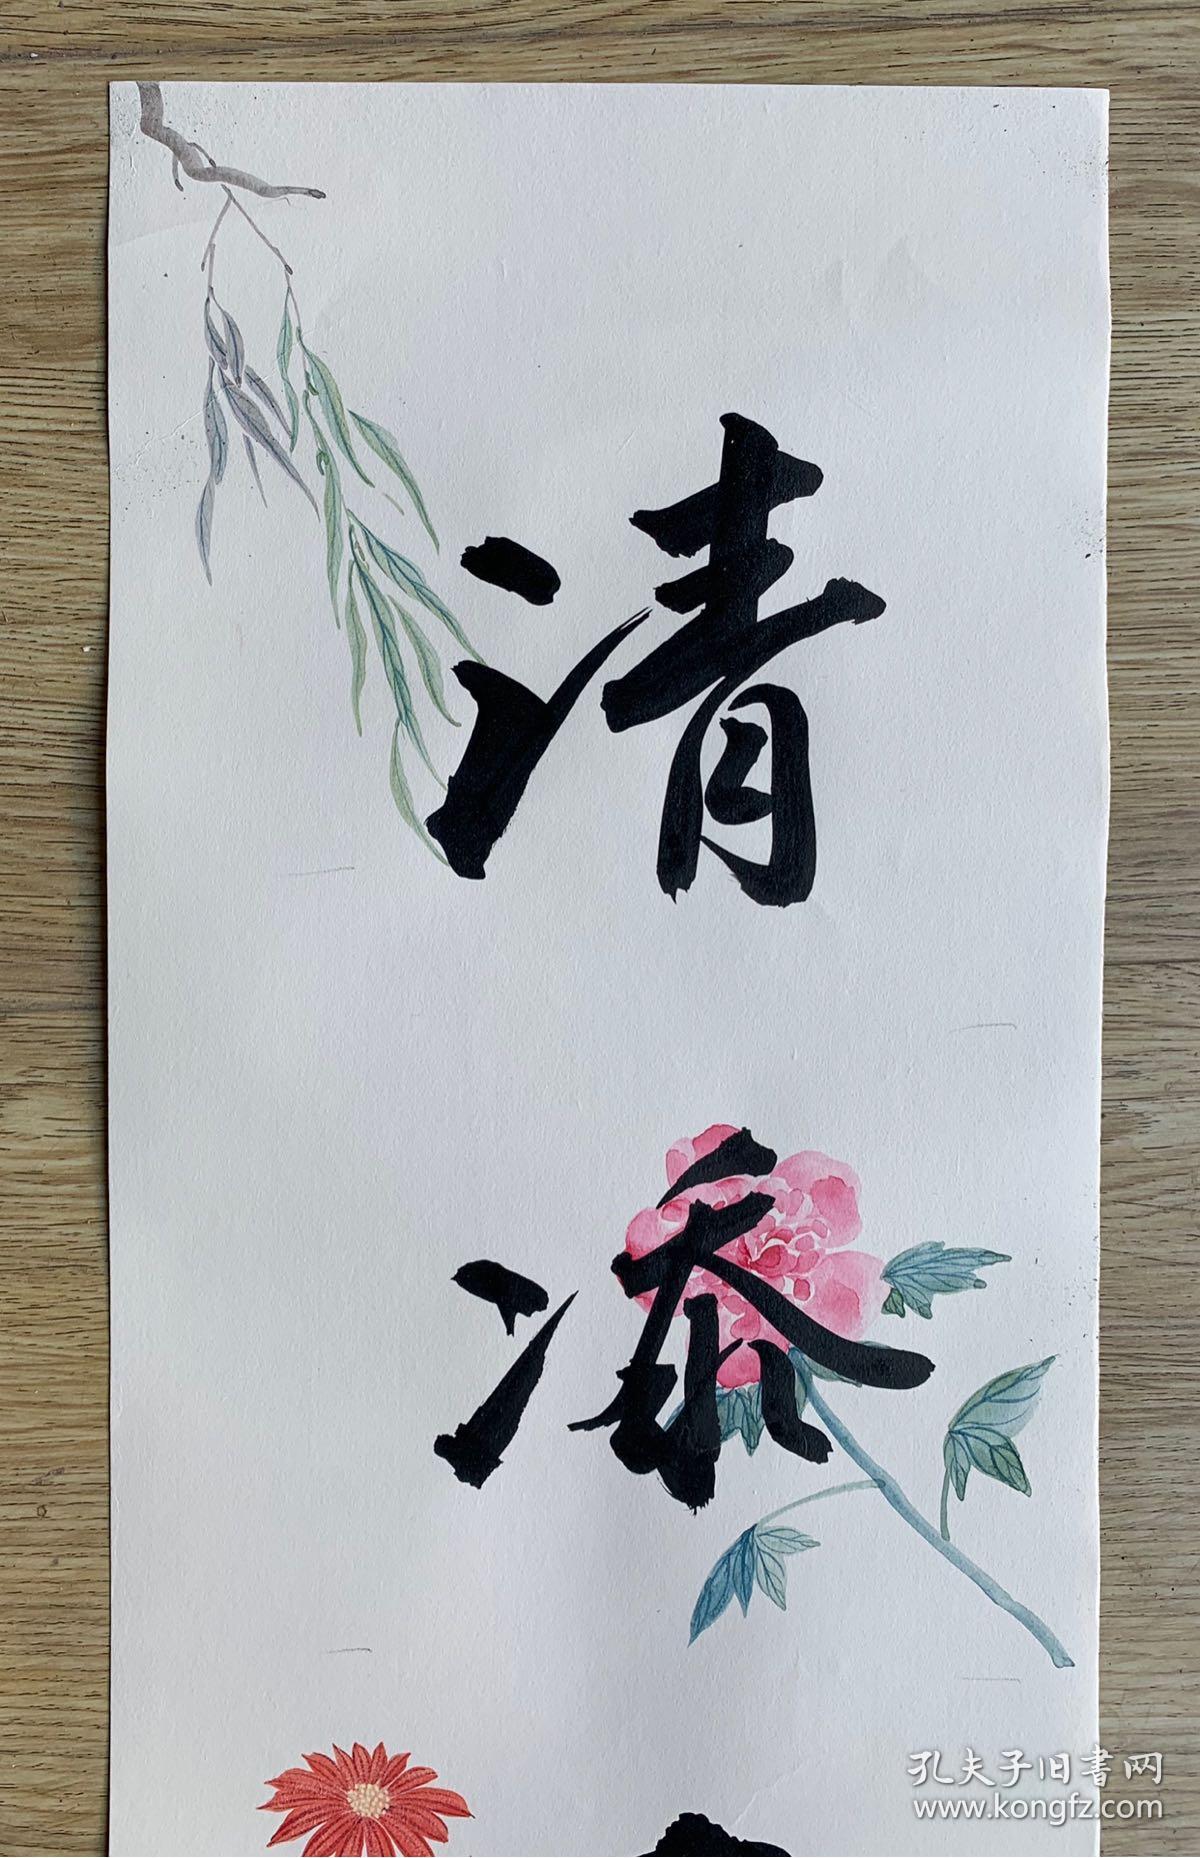 清
添
孔夫子旧书网
www.kongfz.com